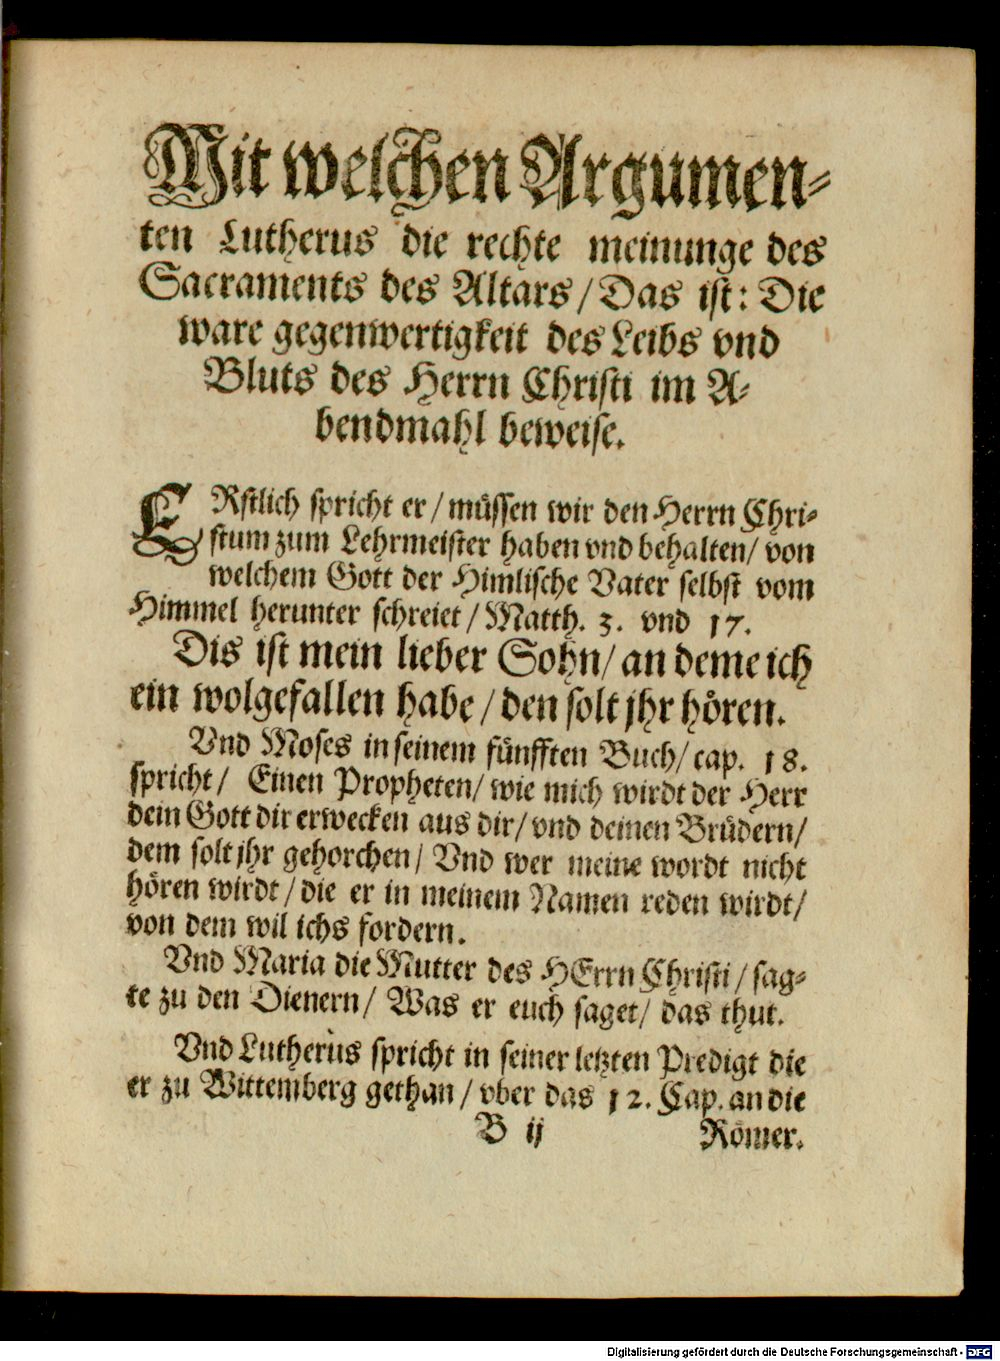 Mit welchen Argumen-
ten Lutherus die rechte meinunge des
Sacraments des Altars / Das ist: Die
ware gegenwertigkeit des Leibs vnd
Bluts des Herrn Christi im A-
bendmahl beweise.
ERstlich spricht er / müssen wir den Herrn Chri-
stum zum Lehrmeister haben vnd behalten / von
welchem Gott der Himlische Vater selbst vom
Himmel herunter schreiet / Matth. 3. vnd 17.
Dis ist mein lieber Sohn / an deme ich
ein wolgefallen habe / den solt jhr hören.
Vnd Moses in seinem fünfften Buch / cap. 18.
spricht / Einen Propheten / wie mich wirdt der Herr
dein Gott dir erwecken aus dir / vnd deinen Brüdern /
dem solt jhr gehorchen / Vnd wer meine wordt nicht
hören wirdt / die er in meinem Namen reden wirdt /
von dem wil ichs fordern.
Vnd Maria die Mutter des HErrn Christi / sag-
te zu den Dienern / Was er euch saget / das thut.
Vnd Lutherus spricht in seiner letzten Predigt die
er zu Wittemberg gethan / vber das 12. Cap. an die
B ij Römer.
Digitalisierung gefördert durch die Deutsche Forschungsgemeinschaft - DFG